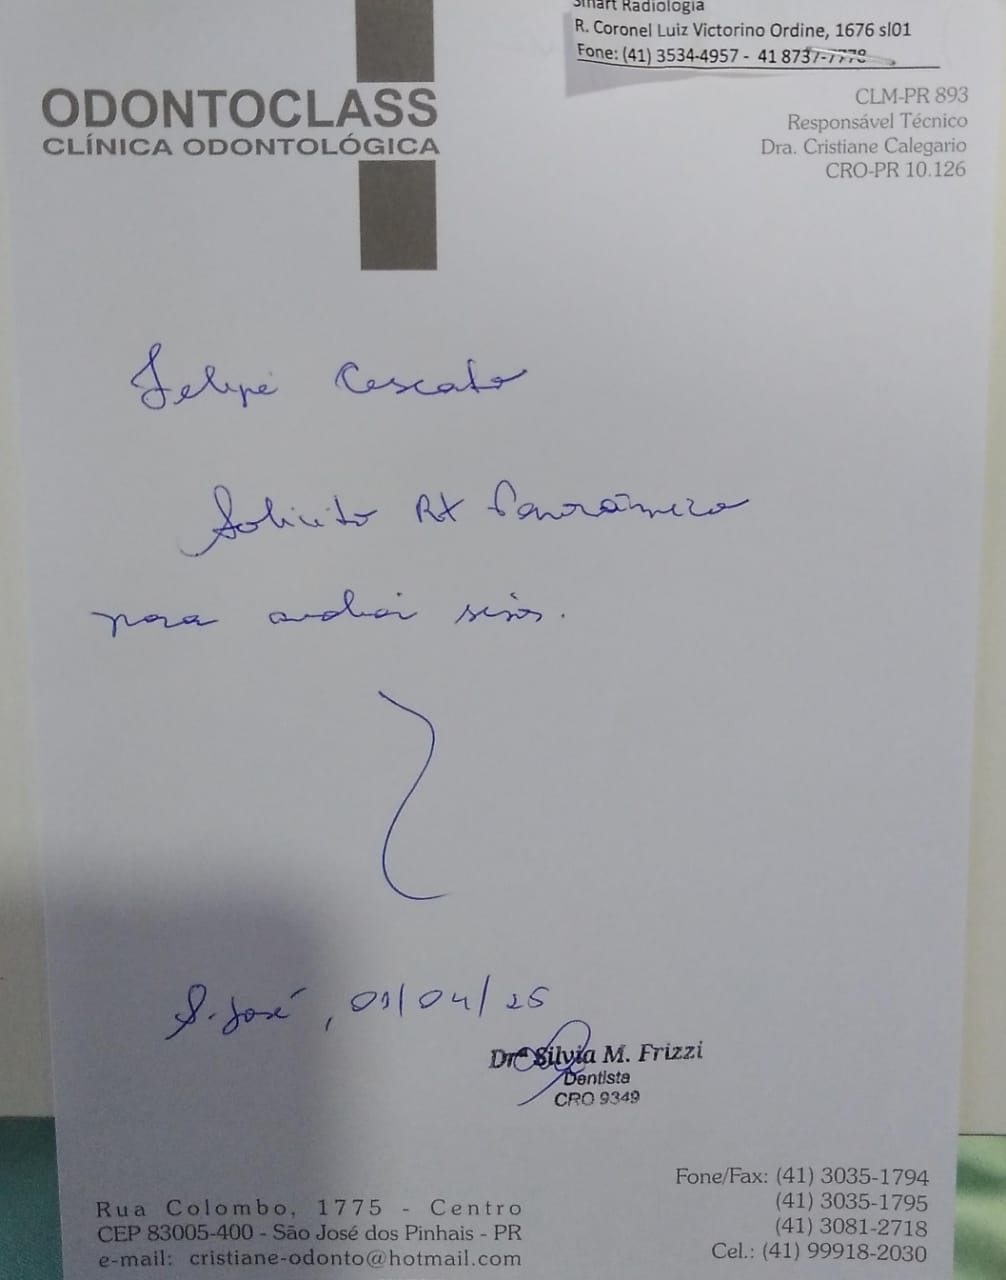 Smart Radiologia
R. Coronel Luiz Victorino Ordine, 1676 sl01
Fone: (41) 3534-4957 - 41 8737-7778
ODONTOCLASS
CLÍNICA ODONTOLÓGICA
CLM-PR 893
Responsável Técnico
Dra. Cristiane Calegario
CRO-PR 10.126
Felipe Cescato
Solicito RX Panorâmico
para avaliar sisos.
S. José, 09/04/25
Drª Silvia M. Frizzi
Dentista
CRO 9349
Rua Colombo, 1775 - Centro
CEP 83005-400 - São José dos Pinhais - PR
e-mail: cristiane-odonto@hotmail.com
Fone/Fax: (41) 3035-1794
(41) 3035-1795
(41) 3081-2718
Cel.: (41) 99918-2030